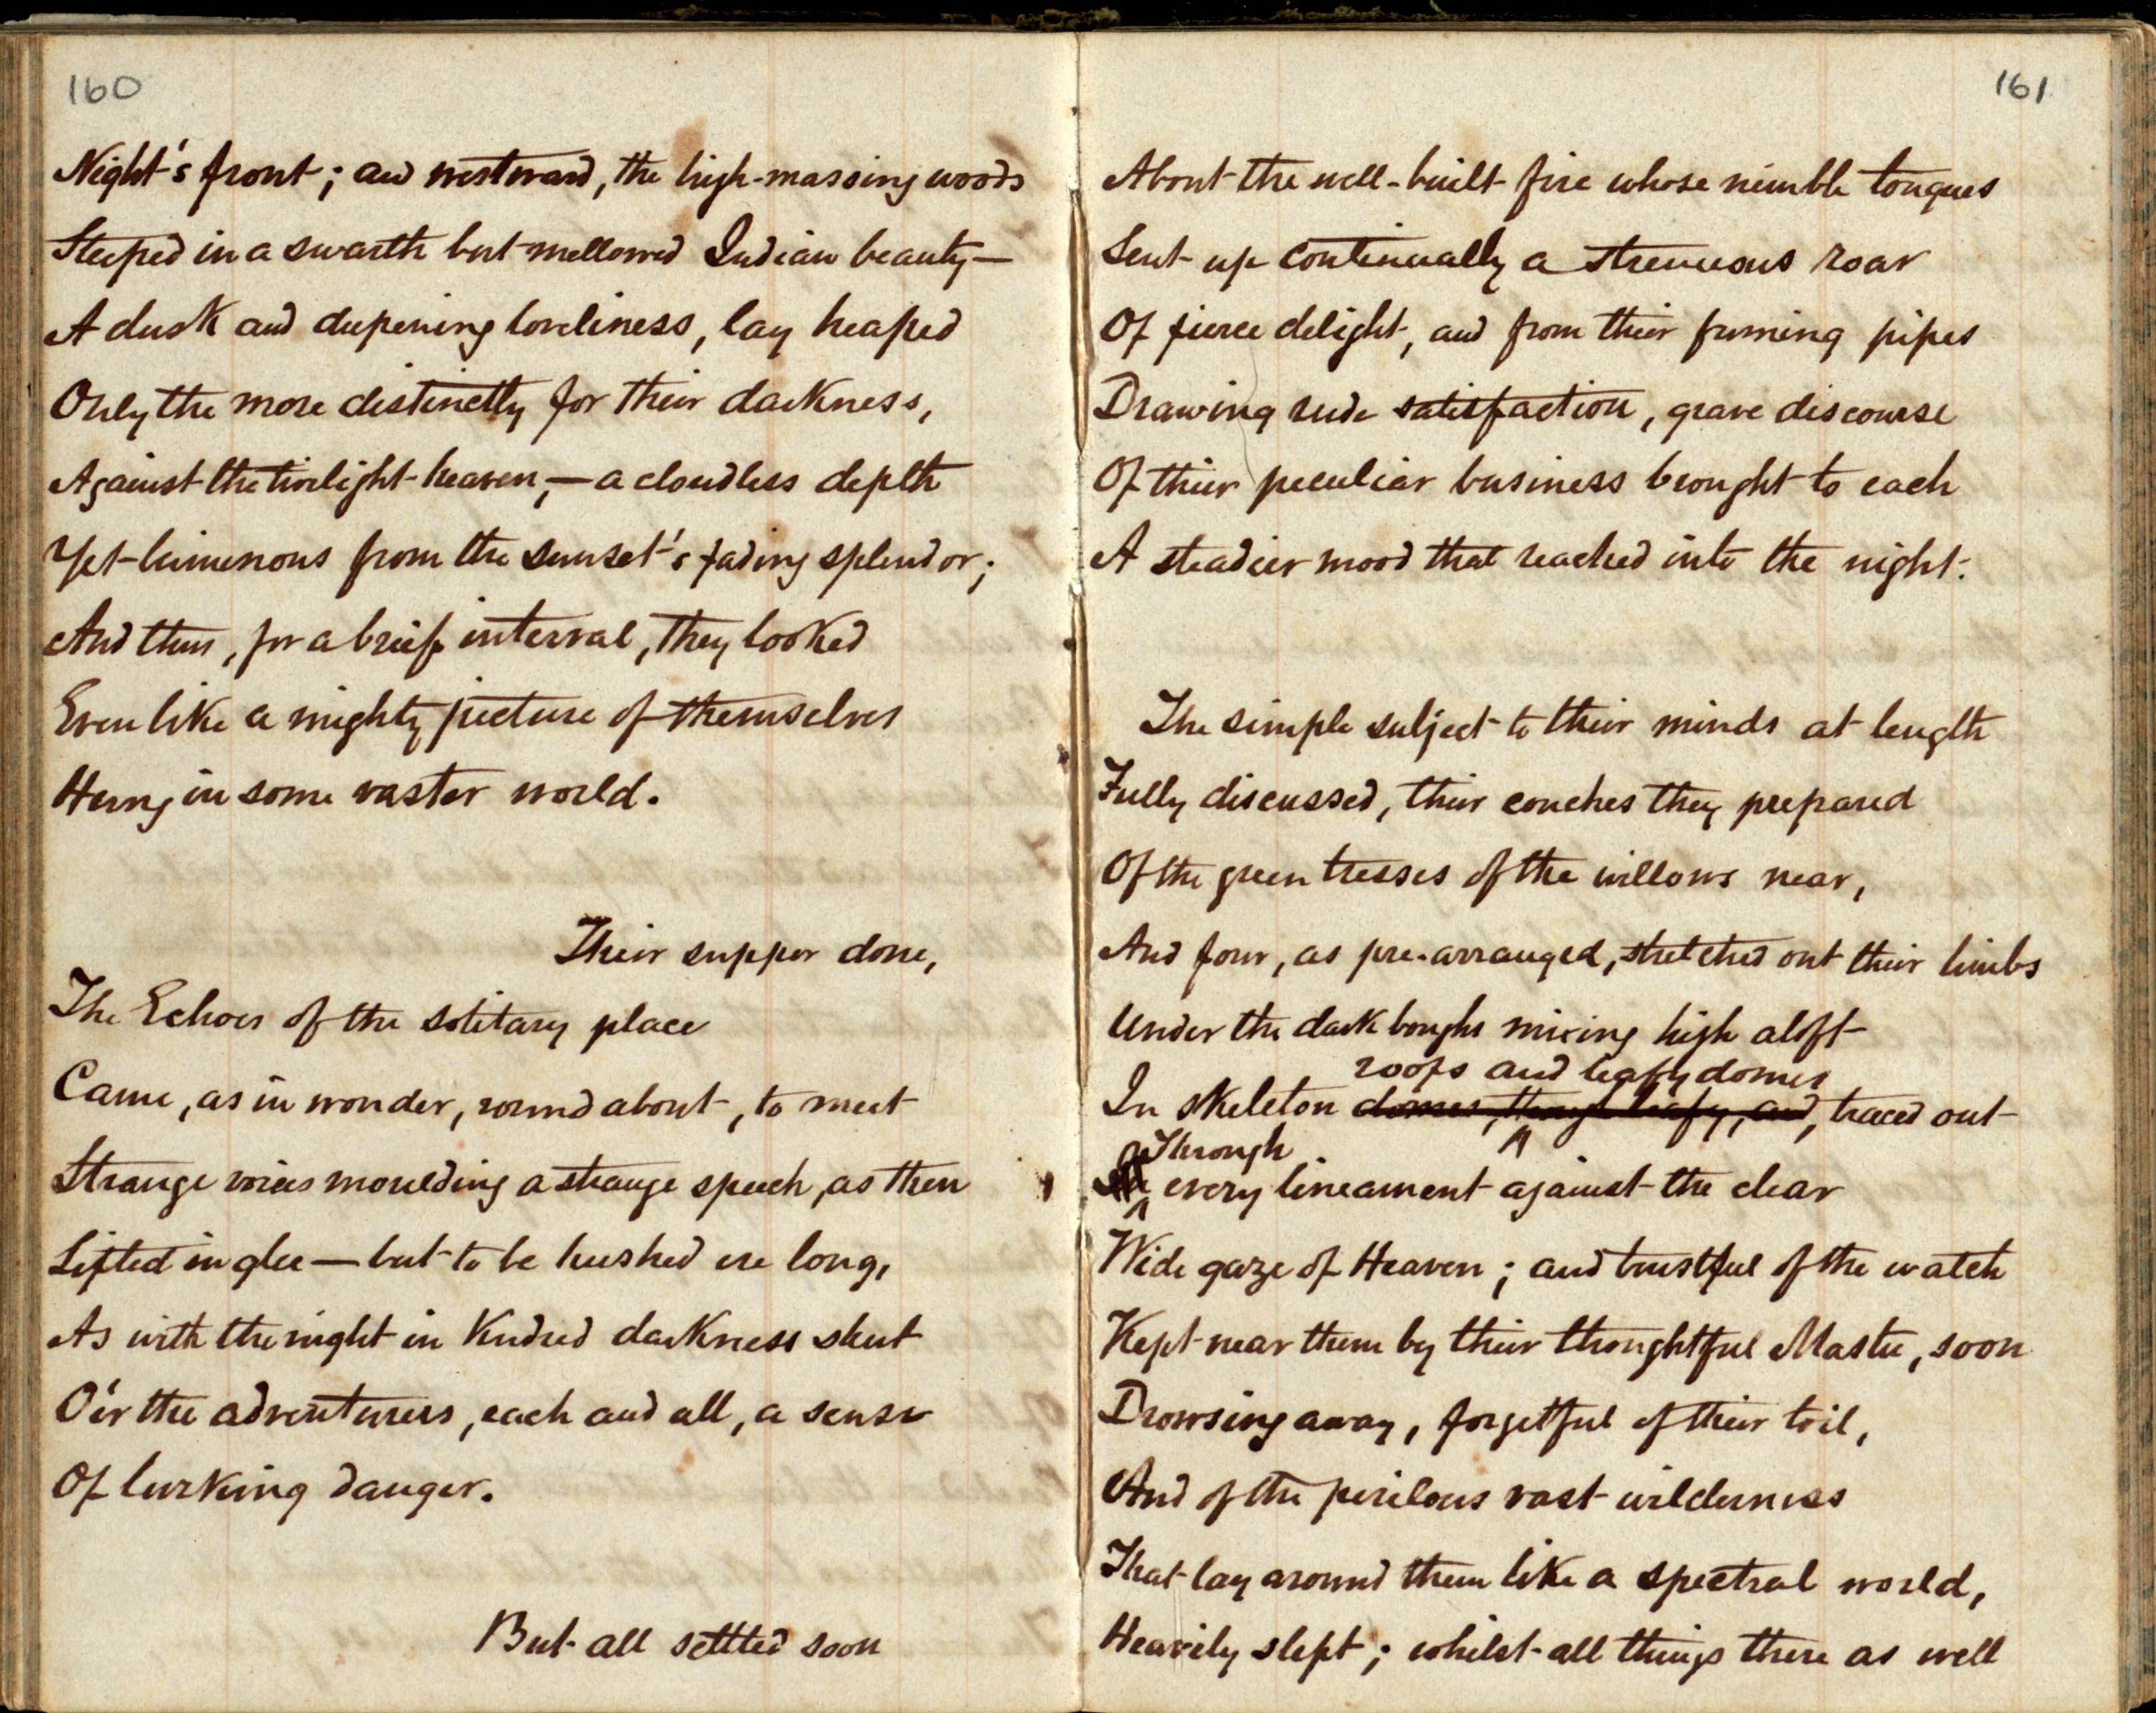 160
Night's front; and westward, the high-massing woods
Steeped in a swarth but mellowed Indian beauty—
A dusk and deepening loveliness, lay heaped
Only the more distinctly for their darkness,
Against the twilight heaven,—a cloudless depth
Yet luminous from the sunset's fading splendor;
And thus, for a brief interval, they looked
Even like a mighty picture of themselves
Hung in some vaster world.
Their supper done,
The Echoes of the solitary place
Came, as in wonder, round about, to meet
Strange voices moulding a strange speech, as then
Lifted in glee—but to be hushed ere long,
As with the night in kindred darkness shut
O'er the adventurers, each and all, a sense
Of lurking danger.
But all settled soon
161
About the well-built fire whose nimble tongues
Sent up continually a strenuous roar
Of fierce delight, and from their fuming pipes
Drawing rude satisfaction, grave discourse
Of their peculiar business brought to each
A steadier mood that reached into the night.
The simple subject to their minds at length
Fully discussed, their couches they prepared
Of the green tresses of the willows near,
And four, as pre-arranged, stretched out their limbs
Under the dark boughs mixing high aloft
roofs and leafy domes
In skeleton domes, though leafy, and, traced out
Through
every lineament against the clear
Wide gaze of Heaven; and trustful of the watch
Kept near them by their thoughtful Master, soon
Drowsing away, forgetful of their toil,
And of the perilous vast wilderness
That lay around them like a spectral world,
Heavily slept; whilst all things there as well